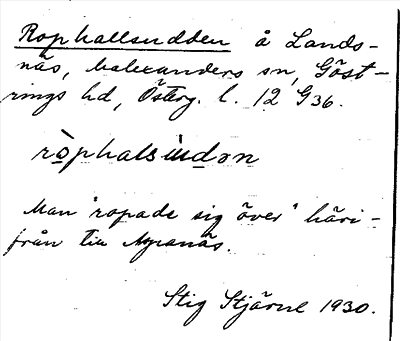 Rophallsudden å Lands-
näs, Malexanders sn, Göst-
rings hd, Österg. l. 12 G36.
ròphalsùdən
Man "ropade sig över" häri-
från till
Stig Stjärne 1930.